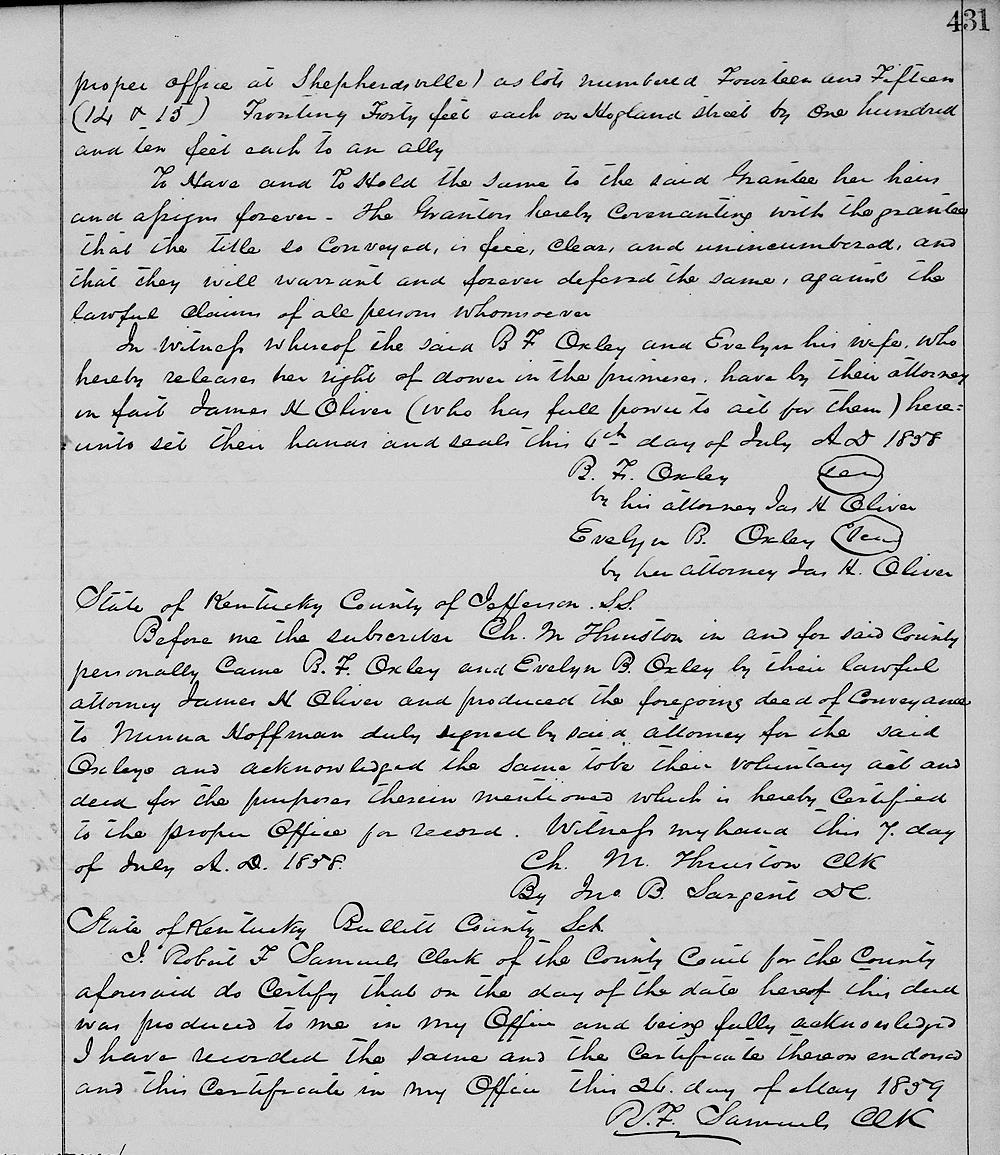 431
proper office at Shepherdsville) as lots numbered Fourteen and Fifteen
(14 & 15) Fronting Forty feet each on Hogland street by One hundred
and ten feet each to an ally
To Have and To Hold the same to the said Grantee her heirs
and assigns forever - The Grantors hereby Covenanting with the grantee
that the title so Conveyed, is free, Clear, and unincumbered, and
that they will warrant and forever defend the same, against the
lawful claims of all persons whomsoever
In Witness whereof the said B F Oxley and Evelyn his wife, who
hereby releases her right of dower in the primises, have by their attorney
in fact James H Oliver (who has full power to act for them) here=
unto set their hands and seals this 6th day of July A D 1858
B. F. Oxley Seal
by his attorney Jas H Oliver
Evelyn B. Oxley Seal
by her attorney Jas H. Oliver
State of Kentucky County of Jefferson. S.S.
Before me the subscriber Ch. M Thruston in and for said County
personally Came B. F. Oxley and Evelyn B. Oxley by their lawful
attorney James H Oliver and produced the foregoing deed of Conveyance
to Minna Hoffman duly signed by said attorney for the said
Oxleys and acknowledged the same to be their voluntary act and
deed for the purposes therein mentioned which is hereby Certified
to the proper Office for record. Witness my hand this 7. day
of July A. D. 1858.
Ch. M. Thruston Clk
By Jno B. Sargent DC.
State of Kentucky Bullitt County Sct.
I. Robert F Samuels Clerk of the County Court for the County
aforesaid do Certify that on the day of the date hereof this deed
was produced to me in my Office and being fully acknowledged
I have recorded the same and the Certificate thereon endorsed
and this Certificate in my Office this 26. day of May 1859
R. F. Samuels Clk